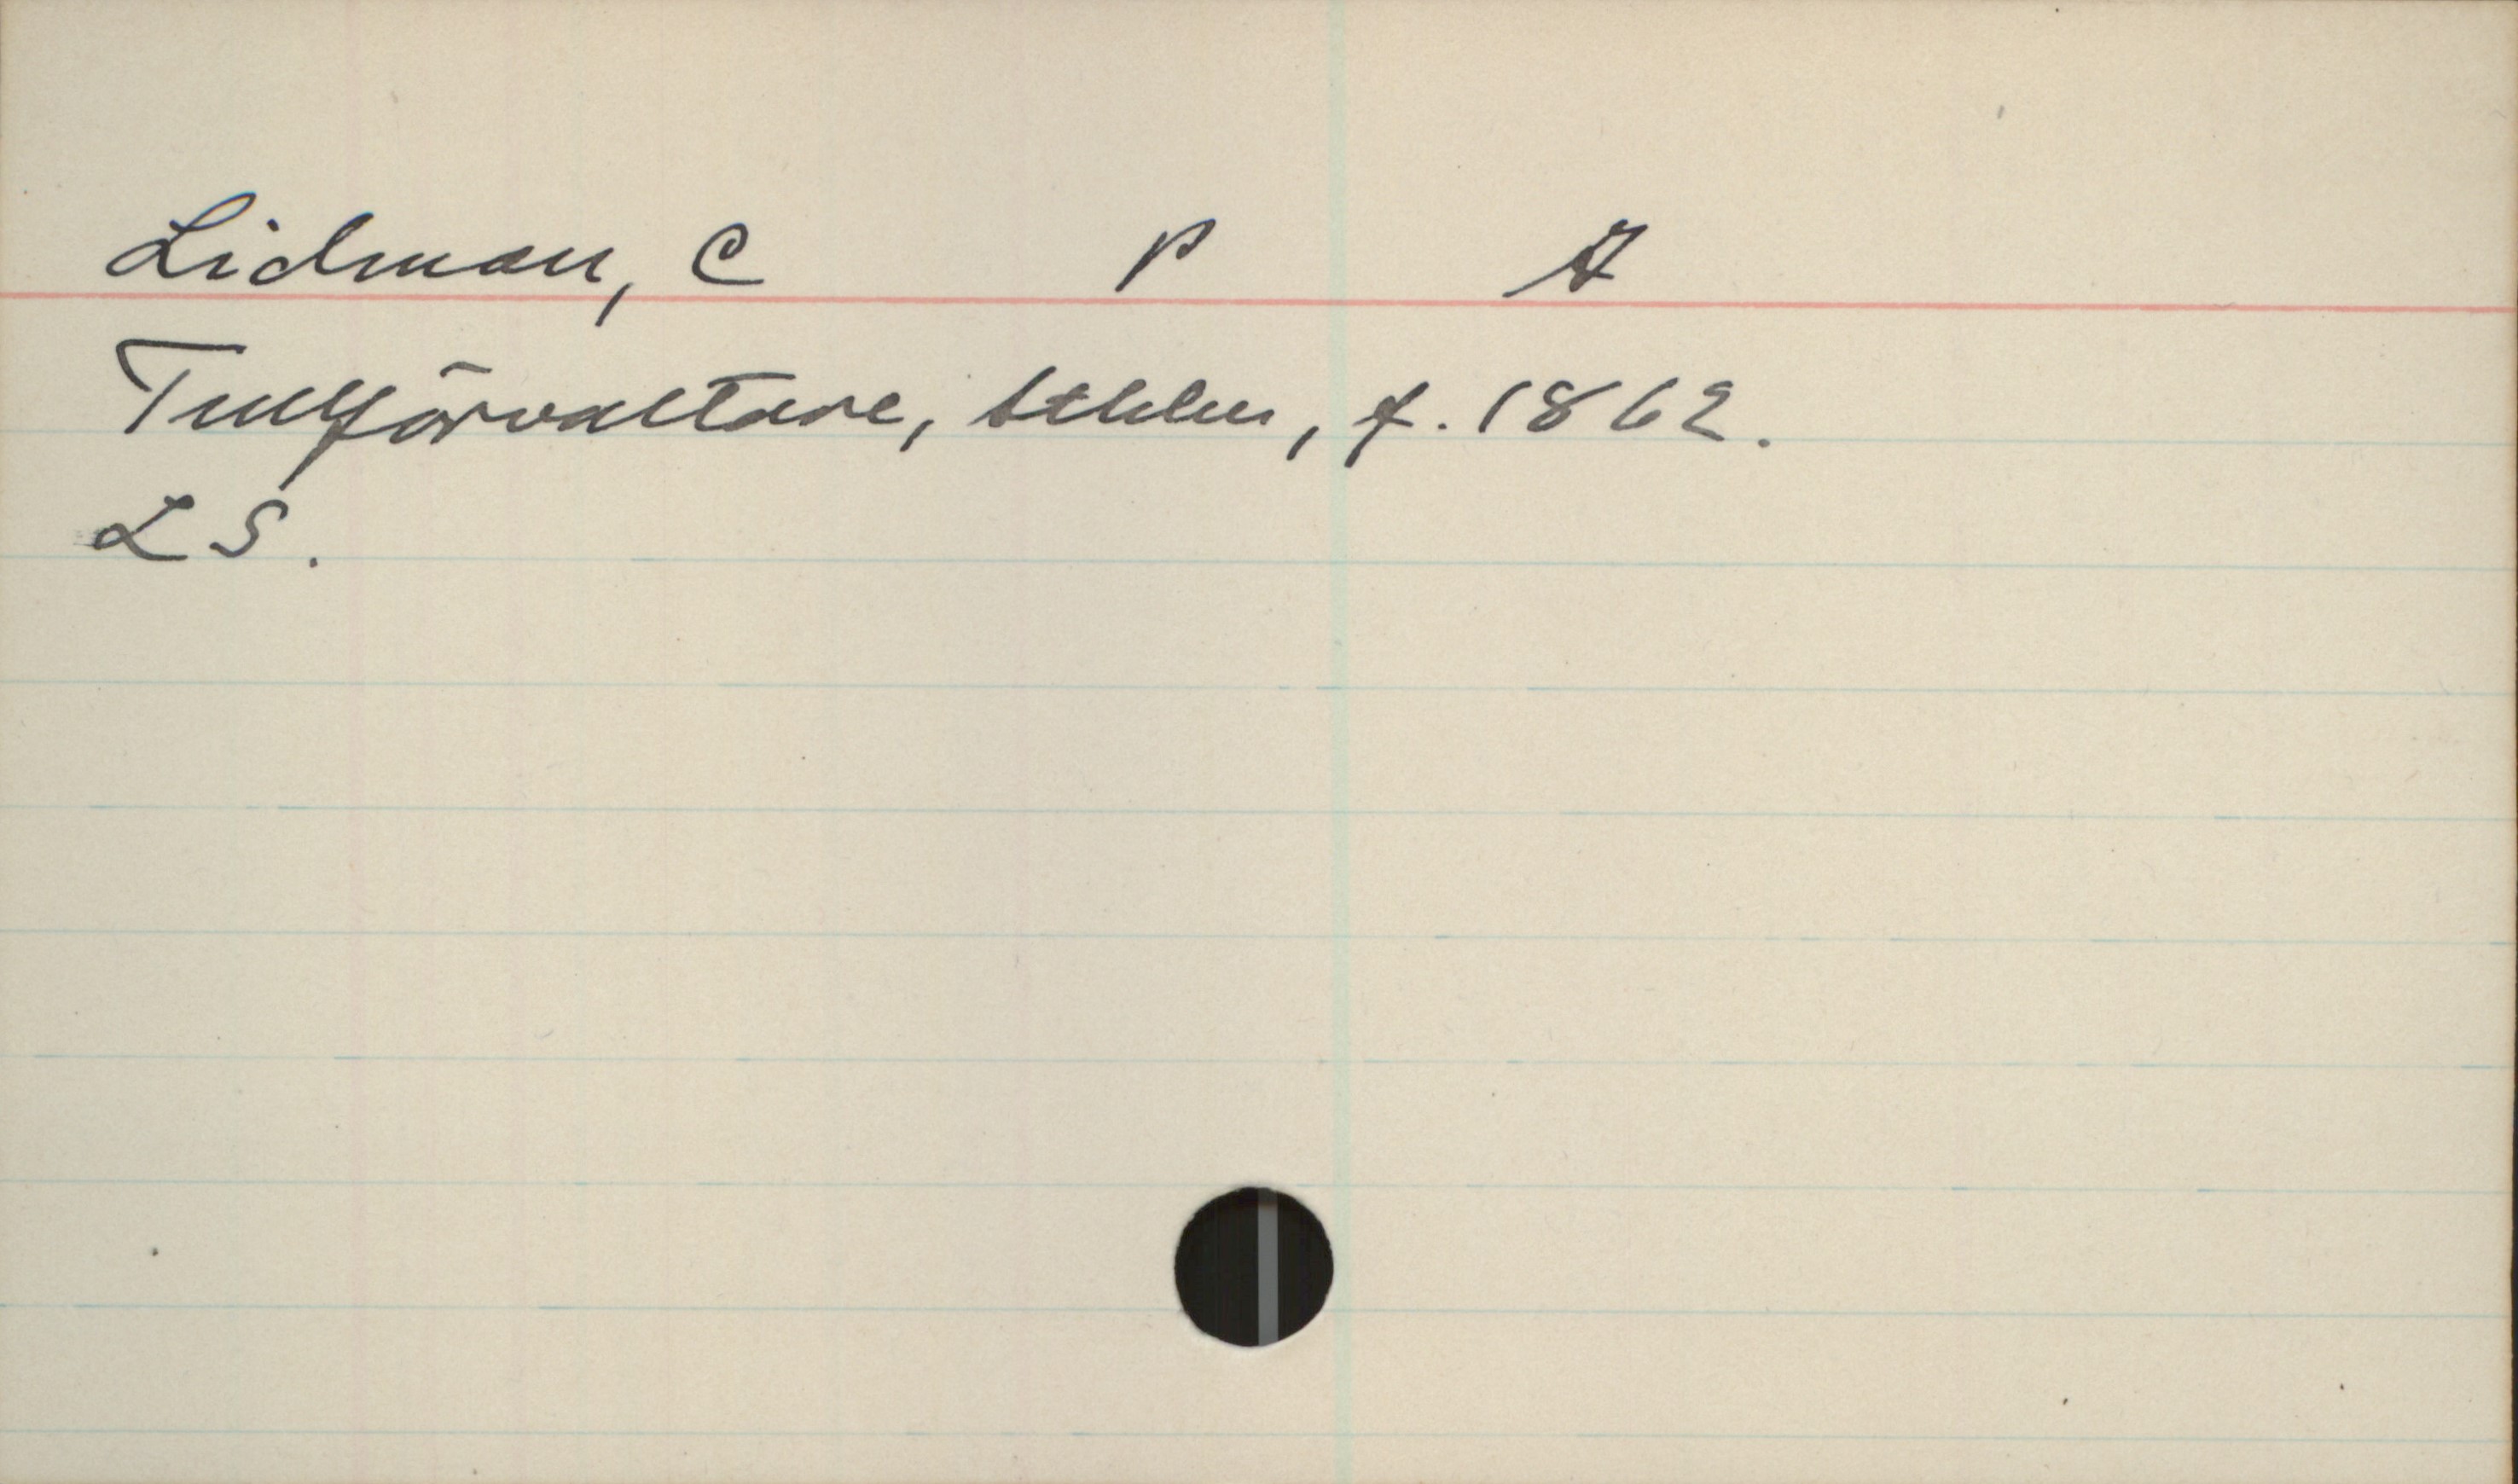 Lidman, C P A
Tullförvaltare, Sthlm, f. 1862.
LS.